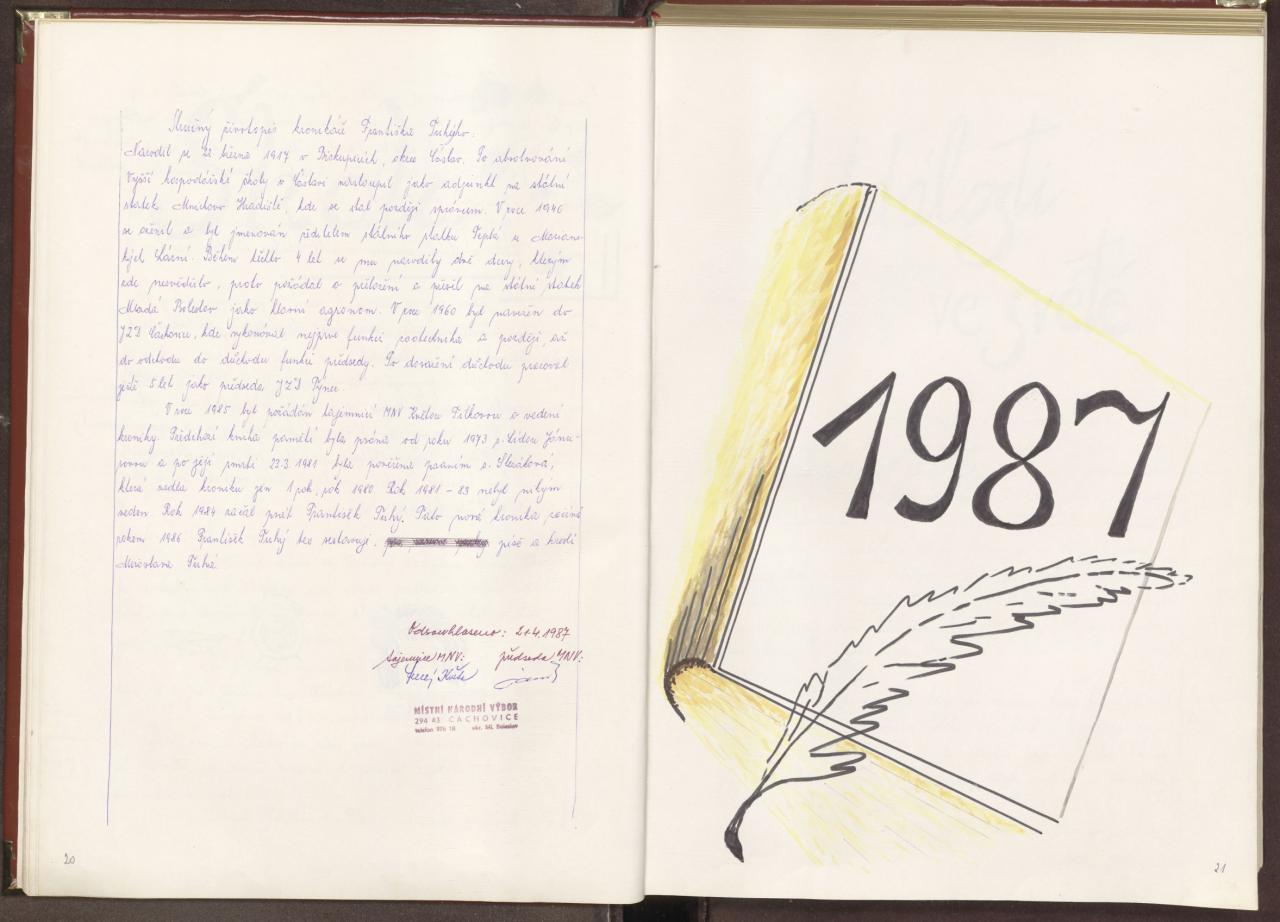 Stručný životopis kronikáře Františka Tichýho.
Narodil se 22. března 1917 v Dískupicích, okres Čáslav. Po absolvování
Vyšší hospodářské školy v Čáslavi nastoupil jako adjunkt na státní
statek Mnichovo Hradiště, kde se stal později správcem. V roce 1946
se oženil a byl jmenován ředitelem státního statku Teplá u Marian-
ských Lázní. Během těchto 4 let se mu narodily dvě dcery, kterým
zde nesvědčilo, proto požádal o přeložení a přišel na státní statek
Mladá Boleslav jako hlavní agronom. V roce 1960 byl navržen do
JZD Čachovice, kde vykonával nejprve funkci zootechnika a později, až
do odchodu do důchodu funkci předsedy. Po dosažení důchodu pracoval
ještě 5 let jako předseda JZD Týnec.
V roce 1985 byl požádán tajemnicí MNV Květou o vedení
kroniky. Předchozí kniha pamětí byla psána od roku 1973 s. Lidou
a po její smrti 23.3.1981 byla pověřena psaním s. Slezáková,
která vedla kroniku jen 1 rok, rok 1980. Rok 1981 – 83 nebyl nikým
veden. Rok 1984 začal psát František Tichý. Tato nová kronika počíná
rokem 1986 František Tichý text sestavuje, píše a kreslí
Miroslava Tichá.
Odsouhlaseno: 21.4.1987
tajemnice MNV: předseda MNV:
MÍSTNÍ NÁRODNÍ VÝBOR
294 43 ČACHOVICE
telefon 976 18 okr. Ml. Boleslav
20
1987
21